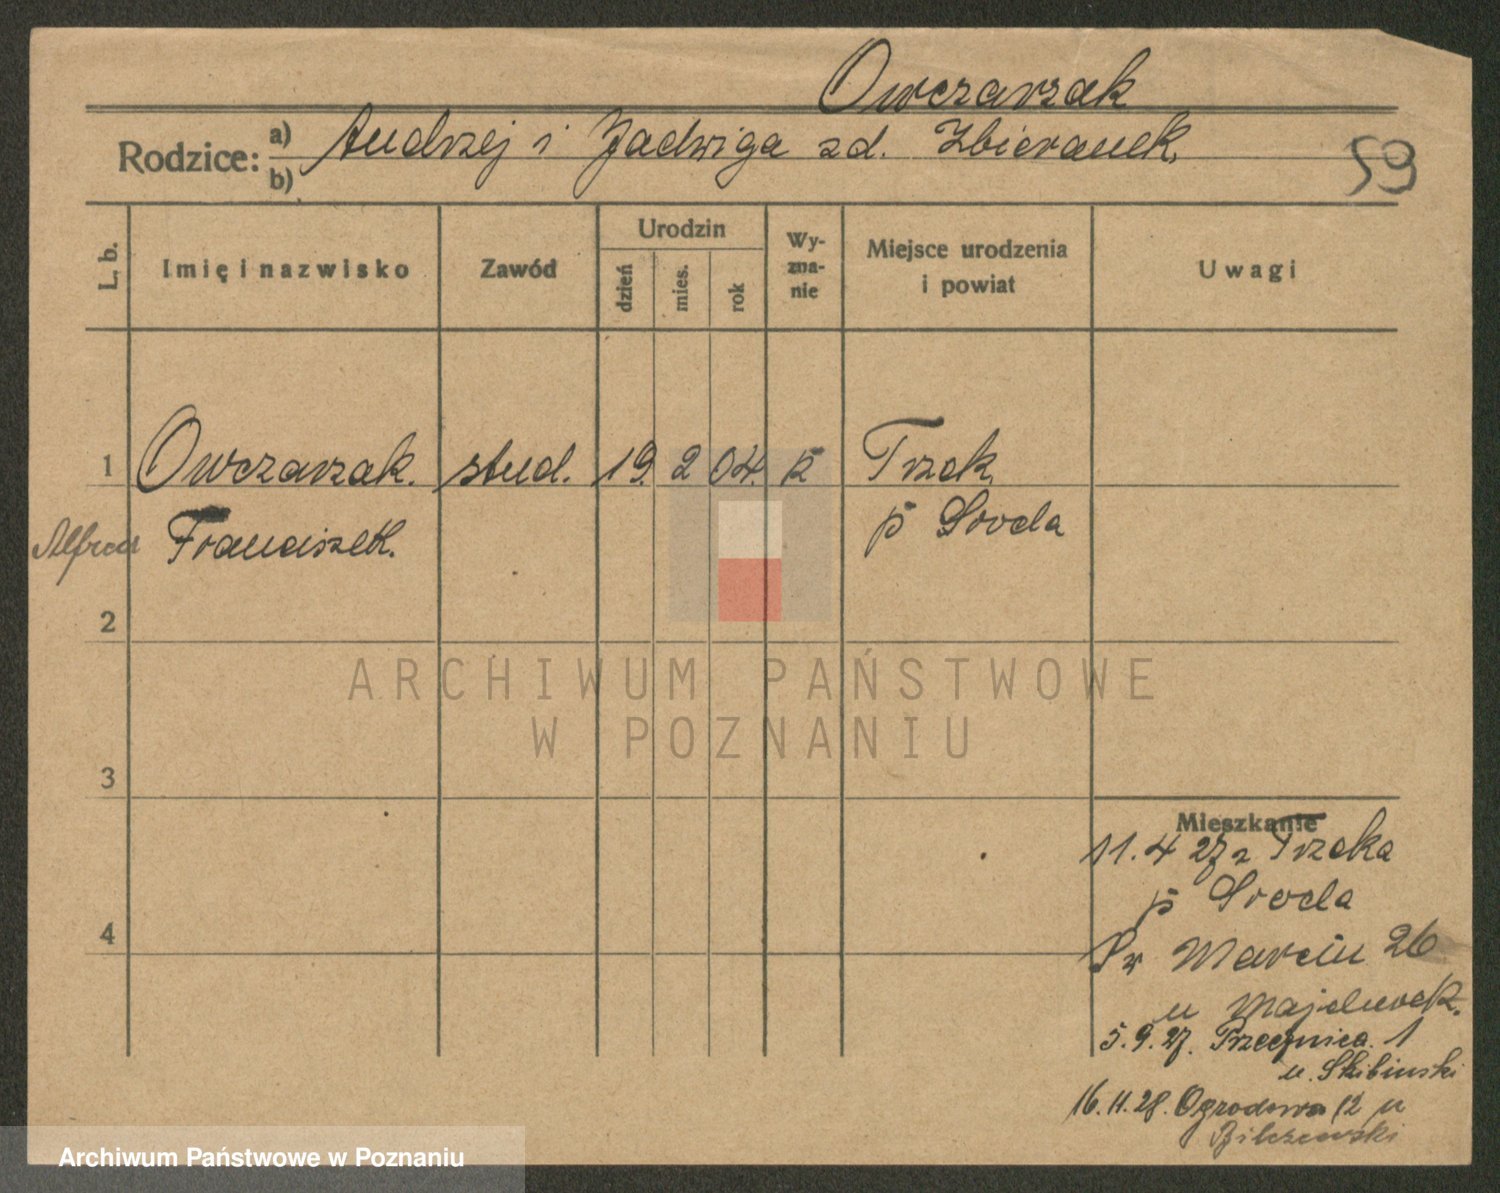 Owczarzak
Rodzice: a) Andrzej i Jadwiga zd. Zbieranek
b)
59
L. b.
Imię i nazwisko
Zawód
Urodzin
dzień
mies.
rok
Wy-
zna-
nie
Miejsce urodzenia
i powiat
Uwagi
1 Owczarzak. stud. 19. 2 04. k Trzek
Alfred Franciszek. p Środa
2
ARCHIWUM PAŃSTWOWE
W POZNANIU
3
Mieszkanie
11.4 27 z Trzeka
p Środa
4
Św Marcin 26
u
5.9.27. Przecznica 1
u. Skibinski
16.11.28. Ogrodowa 12 u
Archiwum Państwowe w Poznaniu